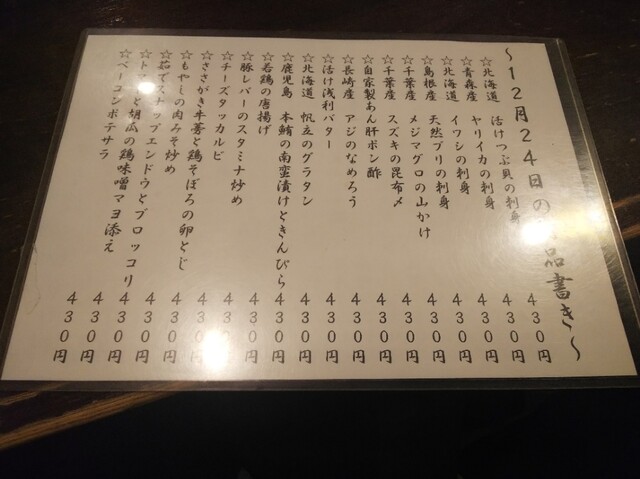 〜12月24日の品書き〜
☆北海道 活けつぶ貝の刺身 430円
☆青森産 ヤリイカの刺身 430円
☆北海道 イワシの刺身 430円
☆島根産 天然ブリの刺身 430円
☆千葉産 メジマグロの山かけ 430円
☆千葉産 スズキの昆布〆 430円
☆自家製あん肝ポン酢 430円
☆長崎産 アジのなめろう 430円
☆活け浅利バター 430円
☆北海道 帆立のグラタン 430円
☆鹿児島 本鮪の南蛮漬けときんぴら 430円
☆若鶏の唐揚げ 430円
☆豚レバーのスタミナ炒め 430円
☆チーズタッカルビ 430円
☆ささがき牛蒡と鶏そぼろの卵とじ 430円
☆もやしの肉みそ炒め 430円
☆茹でスナップエンドウとブロッコリ 430円
☆トマトと胡瓜の鶏味噌マヨ添え 430円
☆ベーコンポテサラ 430円